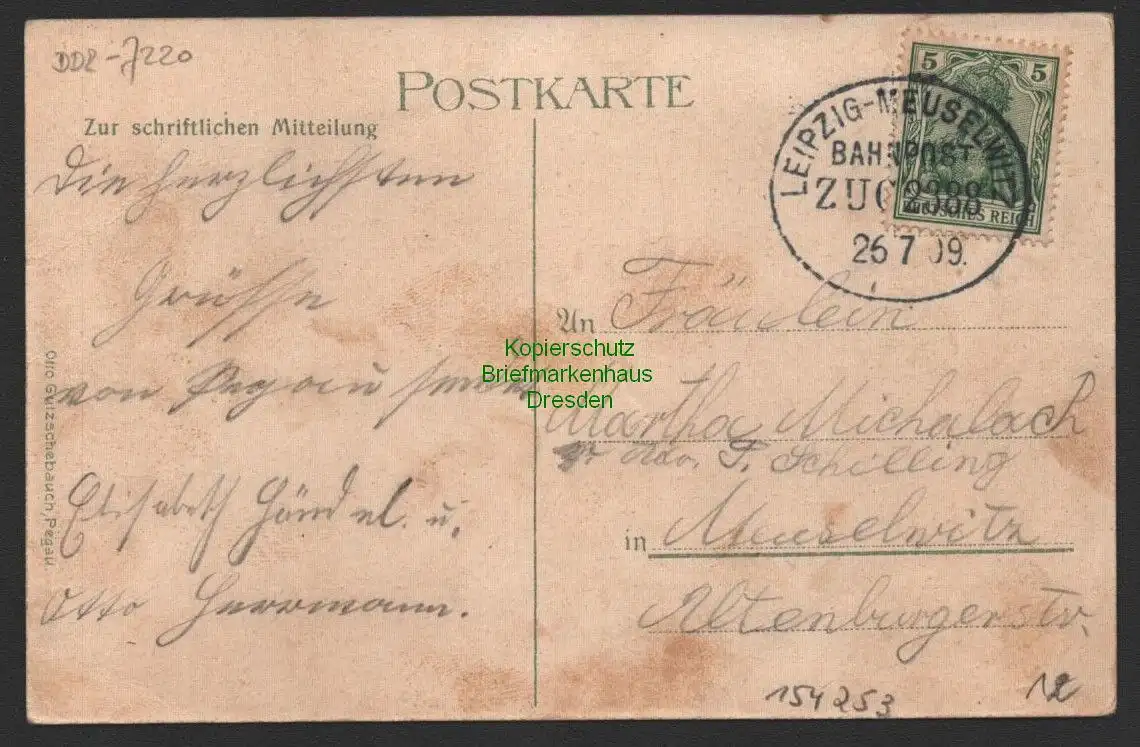 DDR-7220
POSTKARTE
Zur schriftlichen Mitteilung
LEIPZIG-MEUSELWITZ
BAHNPOST
ZUG 2388
26 7 09.
5 5
DEUTSCHES REICH
Die herzlichsten
Grüsse
von Pegau
Elisabeth Händel. u.
Otto Herrmann.
Otto Gutzschebauch, Pegau
An Fräulein
Martha Michalach
Adr. P. Schilling
in Meuselwitz
Altenburgerstr.
Kopierschutz
Briefmarkenhaus
Dresden
154253
12